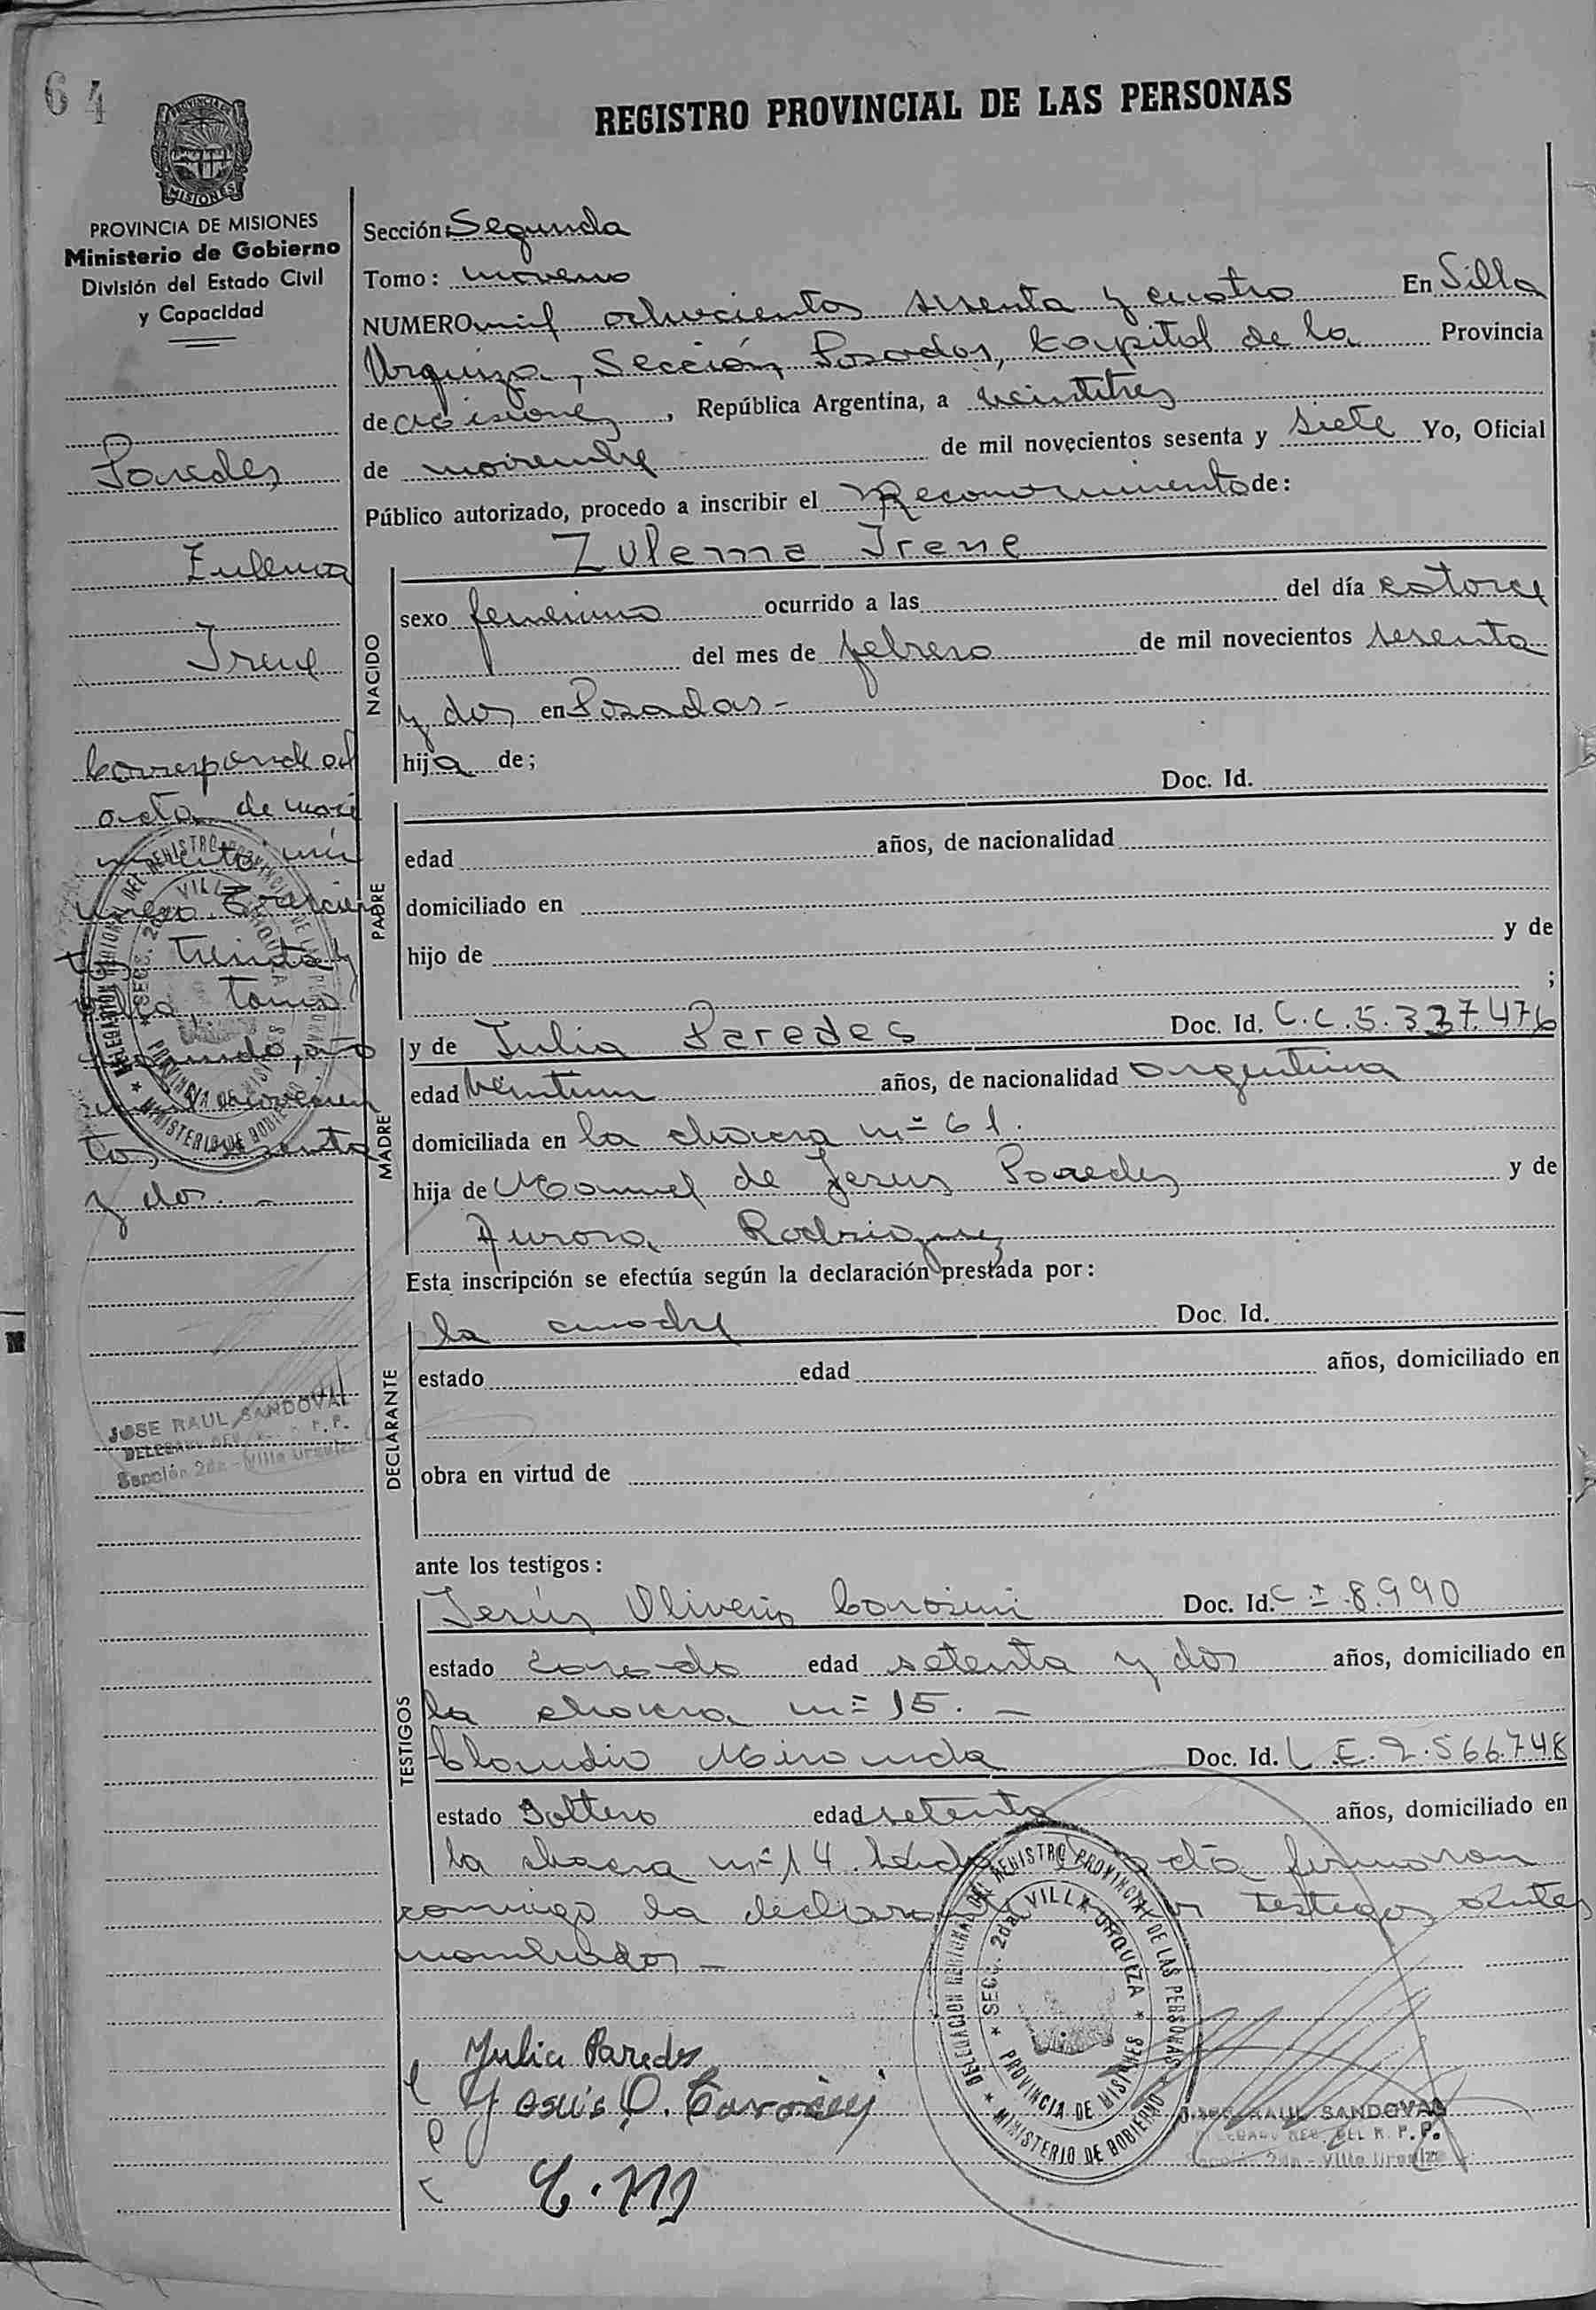 64
REGISTRO PROVINCIAL DE LAS PERSONAS
PROVINCIA DE MISIONES
MISIONES
PROVINCIA DE MISIONES
Ministerio de Gobierno
División del Estado Civil
y Capacidad
Paredes
Zulema
Irene
Corresponde al
acta de naci
miento nú
mero trescien
tos treinta y
ocho, tomo
segundo, año
mil novecien
tos sesenta
y dos. -
JOSE RAUL SANDOVAL
Sección 2da - Villa Urquiza
Sección: Segunda
Tomo: noveno
NUMERO mil ochocientos sesenta y cuatro En Villa
Urquiza, Sección Posadas, Capital de la Provincia
de Misiones, República Argentina, a veintitres
de noviembre de mil novecientos sesenta y siete Yo, Oficial
Público autorizado, procedo a inscribir el Reconocimiento de:
Zulema Irene
NACIDO
sexo femenino ocurrido a las del día catorce
del mes de febrero de mil novecientos sesenta
y dos en Posadas -
hija de;
Doc. Id.
PADRE
edad años, de nacionalidad
domiciliado en
hijo de y de
;
MADRE
y de Julia Paredes Doc. Id. C.C. 5.337.476
edad veintiun años, de nacionalidad argentina
domiciliada en la chacra nº 61.
hija de Manuel de Jesus Paredes y de
Aurora Rodriguez
Esta inscripción se efectúa según la declaración prestada por:
DECLARANTE
la madre Doc. Id.
estado edad años, domiciliado en
obra en virtud de
ante los testigos:
TESTIGOS
Jesús Oliverio Doc. Id. 8.990
estado casado edad setenta y dos años, domiciliado en
la chacra nº 15. -
Claudio Miranda Doc. Id. L.E. 2.566.748
estado Soltero edad setenta años, domiciliado en
la chacra nº 14. Leída el acta firmaron
conmigo la declarante y los testigos antes
nombrados -
DELEGACION REGIONAL DEL REGISTRO PROVINCIAL DE LAS PERSONAS
* MINISTERIO DE GOBIERNO *
* SECC. 2da. VILLA URQUIZA *
PROVINCIA DE MISIONES
Julia Paredes
Jesús O.
C. M
JOSE RAUL SANDOVAL
DELEGADO REG. DEL R. P. P.
Sección 2da - Villa Urquiza